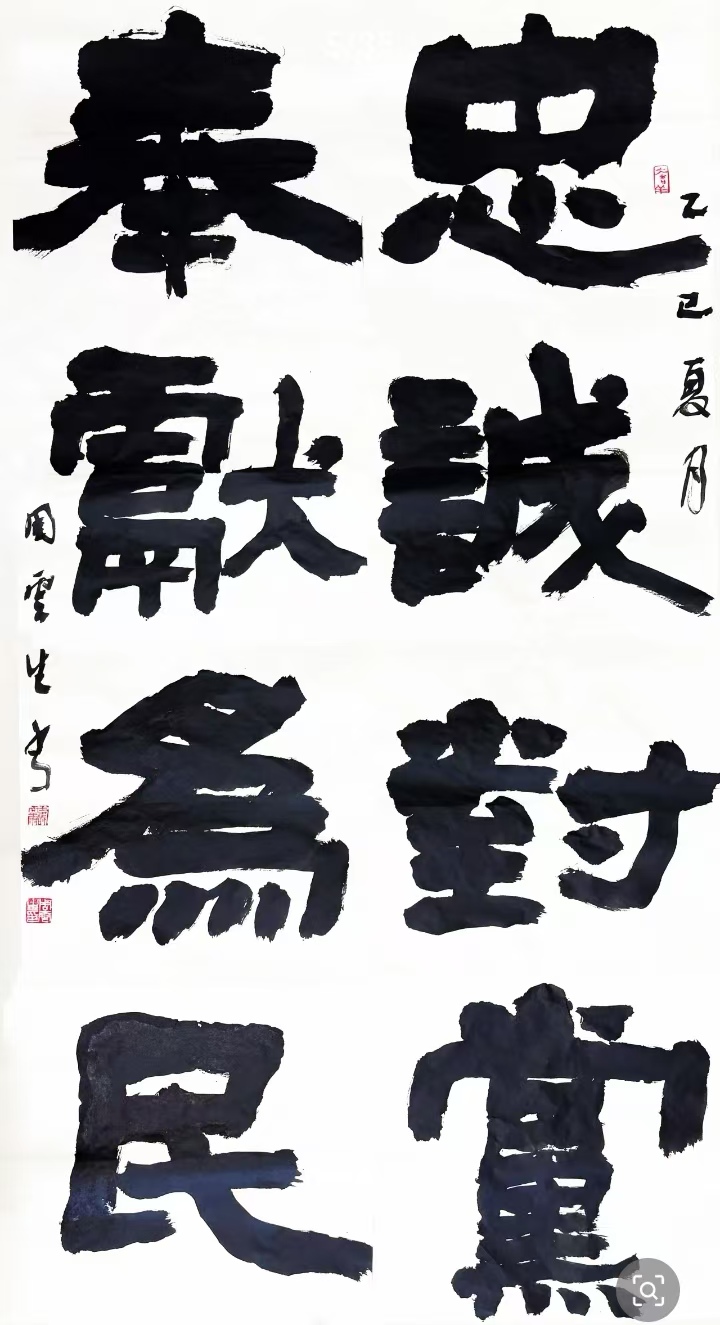 忠誠對黨
奉獻為民
乙巳夏月
周雲生书